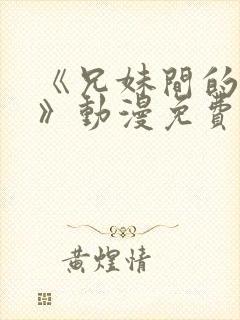 《兄妹間的
》動漫免費
黄煌情